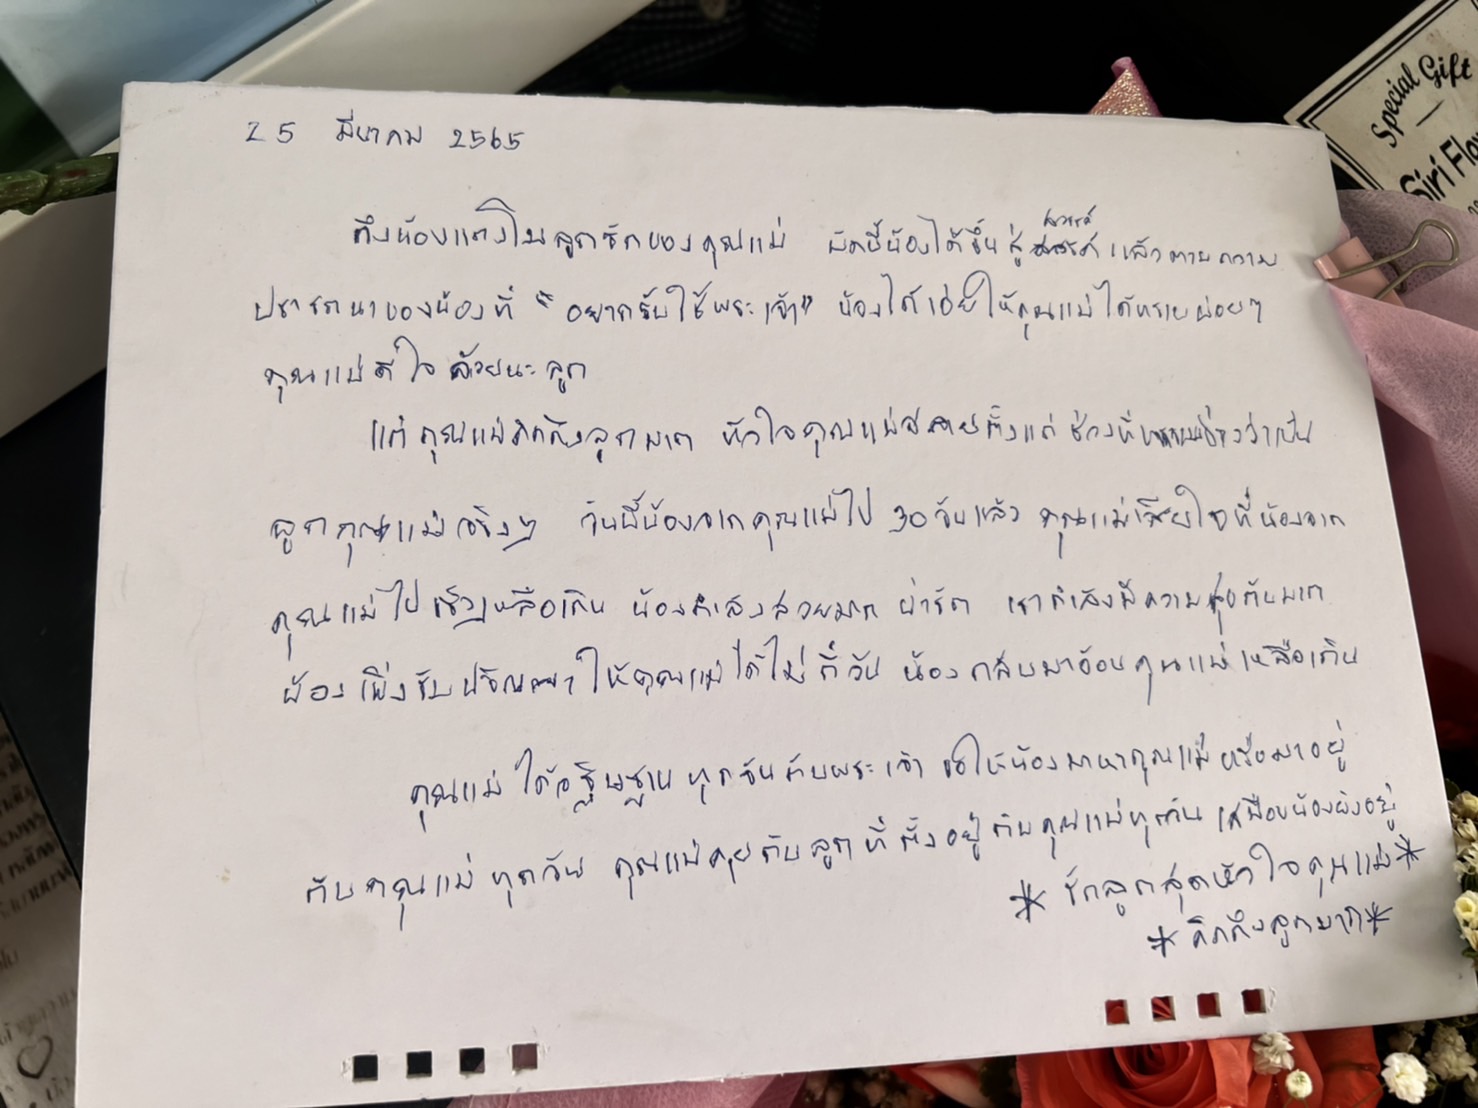 25 มีนาคม 2565
ถึงน้องแตงโม ลูกรักของคุณแม่ บัดนี้น้องได้ขึ้นสู่ สวรรค์ แล้วตามความ
ปรารถนาของน้องที่ "อยากรับใช้พระเจ้า" น้องได้เอ่ยให้คุณแม่ได้ทราบบ่อยๆ
คุณแม่ดีใจด้วยนะลูก
แต่คุณแม่คิดถึงลูกมาก หัวใจคุณแม่สลายตั้งแต่ช่วงที่ ว่าเป็น
ลูกคุณแม่จริงๆ วันนี้น้องจากคุณแม่ไป 30 วันแล้ว คุณแม่เสียใจที่น้องจาก
คุณแม่ไปเร็วเหลือเกิน น้องกำลังสวยมาก น่ารัก เรากำลังมีความสุขกันมาก
น้องเพิ่งรับปริญญาให้คุณแม่ได้ไม่กี่วัน น้องกลับมาอ้อนคุณแม่เหลือเกิน
คุณแม่ได้อฐิษฐานทุกวันกับพระเจ้า ขอให้น้องมาหาคุณแม่หรือมาอยู่
กับคุณแม่ทุกวัน คุณแม่คุยกับลูกที่ตั้งอยู่กับคุณแม่ทุกวัน เสมือนน้องยังอยู่
* รักลูกสุดหัวใจคุณแม่ *
* คิดถึงลูกมาก *
Special Gift
Siri